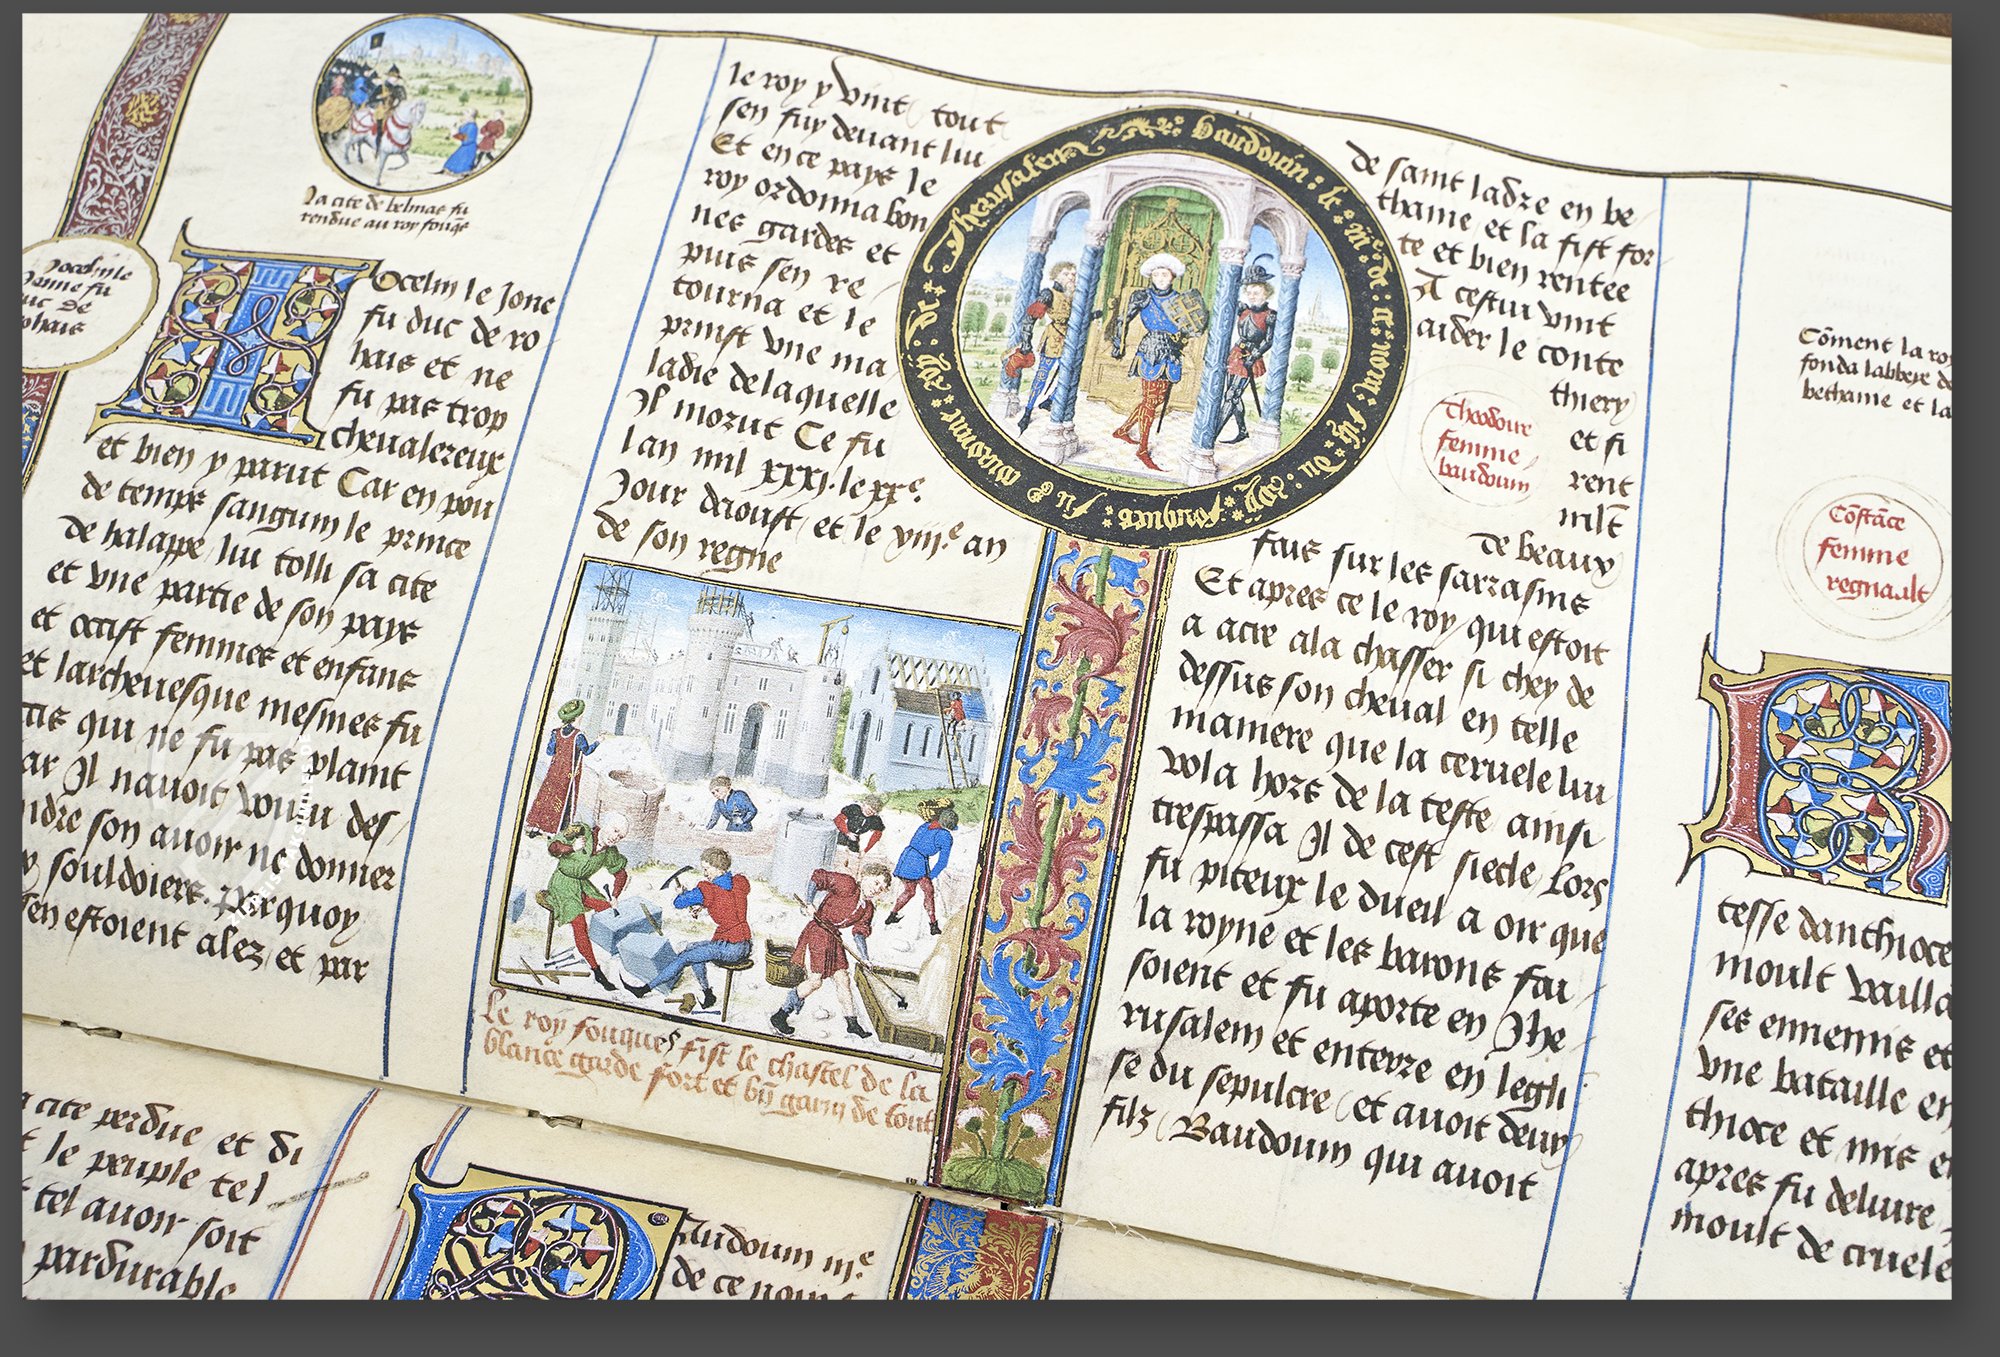 La cite de belmas fu
rendue au roy fouqs
Jocelin le
Jonne fu
duc de
rohais
Jocelin le Jone
fu duc de ro
hais et ne
fu pas trop
cheualereux
et bien y parut Car en pou
de temps sanguin le prince
de halappe luy tolli sa cite
et vne partie de son pays
et occist femmes et enfans
et larcheuesque mesmes fu
qui ne fu pas plaint
car Il nauoit voulu des
son auoir ne donner
souldoiers. parquoy
sen estoient alez et par
le roy y vint tout
sen fuy deuant luy
Et en ce pays le
roy ordonna bon
nes gardes et
puis sen re
tourna et le
prinst vne ma
ladie de laquelle
Il morut Ce fu
lan mil xxxj. le xxe.
Jour daoust, et le viije an
de son regne
Le roy fouques fist le chastel de la
blance garde fort et bn garni de tout
baudouin : le : iije : de : ce : nom : filz : du : roy : fouques fu couronne roy de Jherusalem
de saint ladre en be
thanie et la fist for
te et bien rentee
A cestui vint
aider le conte
thiery
et fi
rent
mlt
de beaux
theodoire
femme
baudouin
fais sur les sarrasins
Et apres ce le roy qui estoit
a acre ala chasser si chey de
dessus son cheual en telle
maniere que la ceruele luy
vola hors de la teste ainsi
trespassa Il de cest siecle Lors
fu piteux le dueil a oir que
la royne et les barons fai
soient et fu aporte en Jhe
rusalem et enterre en legli
se du sepulcre et auoit deux
filz Baudouin qui auoit
Coment la roy
fonda labbeye de
bethanie et la
Costace
femme
regnault
tesse danthioce
moult vailla
ses ennemis et
vne bataille en
thioce et mis e
apres fu deliure
moult de cruele
cite perdue et di
le peuple tel
tel auoir soit
pardurable
Baudouin iije
de ce nom